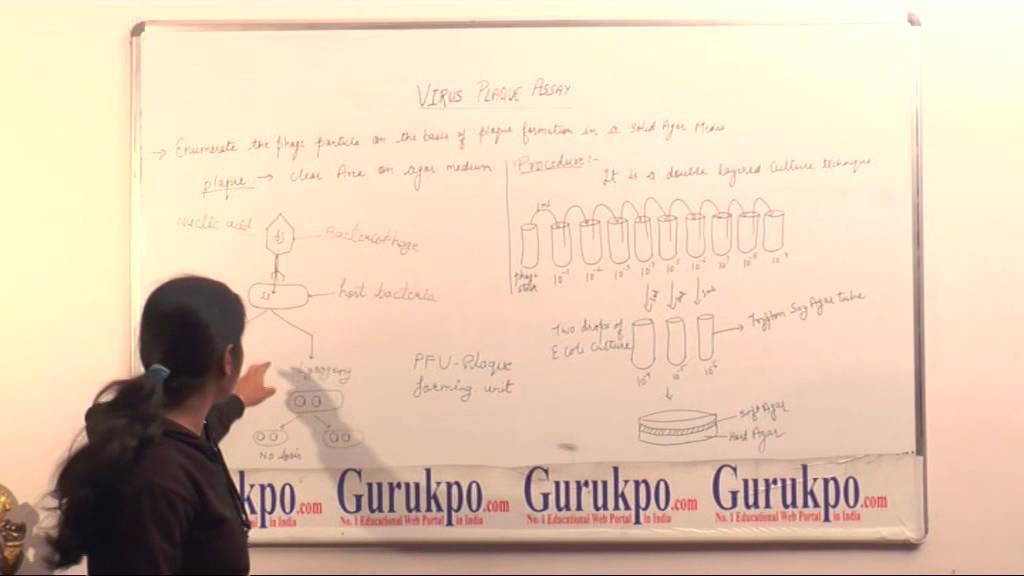 VIRUS PLAQUE ASSAY
→ Enumerate the phage particle on the basis of plaque formation in a solid Agar Media
plaque → clear Area on agar medium
Procedure:-
It is a double layered culture technique
Nuclic acid
Bacteriophage
host bacteria
1ml
phage stock
10⁻¹ 10⁻² 10⁻³ 10⁻⁴ 10⁻⁵ 10⁻⁶ 10⁻⁷ 10⁻⁸ 10⁻⁹
Two drops of
E Coli Culture
Trypton Soy Agar tube
10⁻⁴ 10⁻⁵ 10⁻⁶
PFU - Plaque
forming unit
No lysis
Soft Agar
Hard Agar
kpo.com Gurukpo.com Gurukpo.com Gurukpo.com
in India No. 1 Educational Web Portal in India No. 1 Educational Web Portal in India No. 1 Educational Web Portal in India